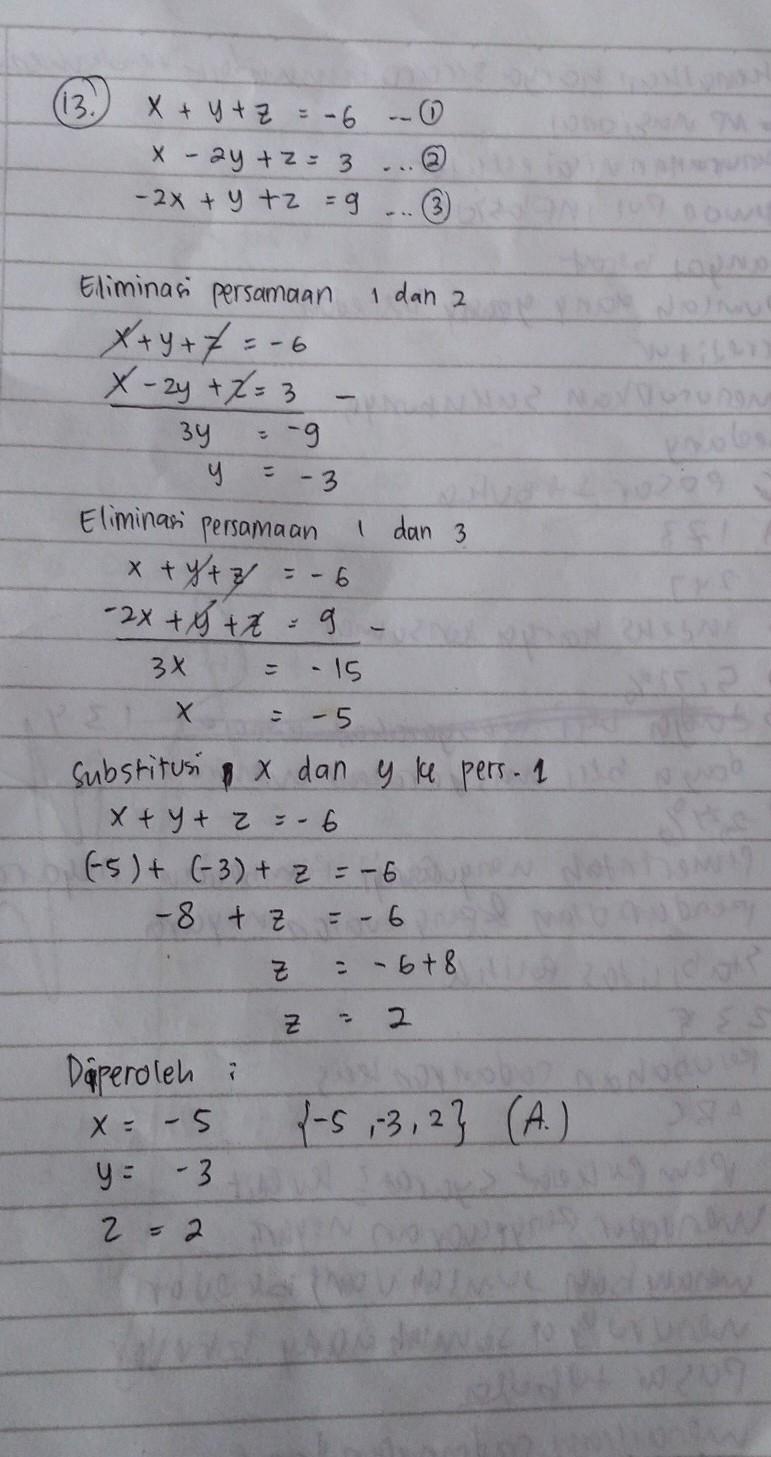 13. x + y + z = -6 --- ①
x - 2y + z = 3 ... ②
-2x + y + z = 9 ... ③
Eliminasi persamaan 1 dan 2
x + y + z = -6
x - 2y + z = 3 -
3y = -9
y = -3
Eliminasi persamaan 1 dan 3
x + y + z = -6
-2x + y + z = 9 -
3x = -15
x = -5
Substitusi x dan y ke pers. 1
x + y + z = -6
(-5) + (-3) + z = -6
-8 + z = -6
z = -6+8
z = 2
Diperoleh :
x = -5 {-5, -3, 2} (A.)
y = -3
z = 2